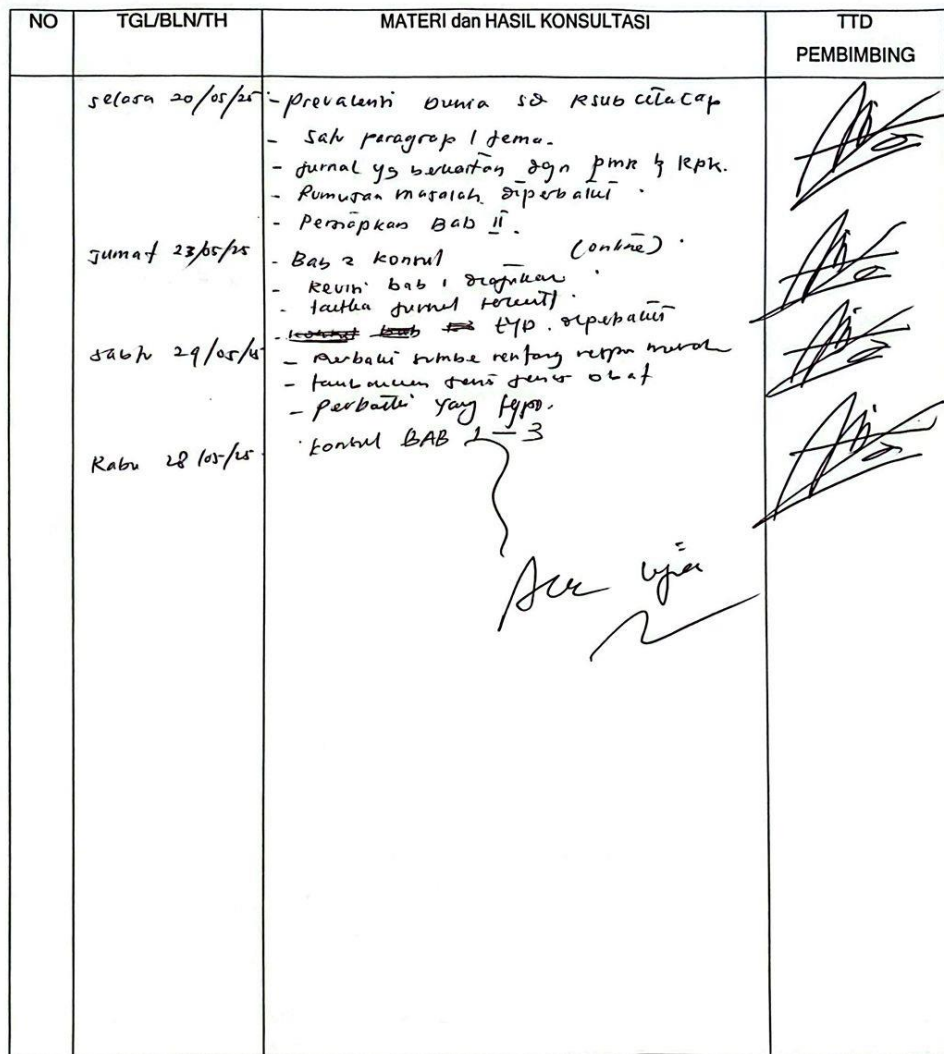 NO TGL/BLN/TH MATERI dan HASIL KONSULTASI TTD PEMBIMBING
selasa 20/05/25 - Prevalensi Dunia sd RSUD Cilacap
- Satu paragrap 1 tema.
- Jurnal yg berkaitan dgn PMR & RPK.
- Rumusan masalah diperbaiki.
- Persiapkan Bab II.
Jumat 23/05/25 - Bab 2 konsul (online).
- Revisi bab 1 diajukan
- jurnal
- typ. diperbaiki
Sabtu 29/05/25 - Perbaiki sumbe rentang respon marah
- jenis jenis obat
- Perbaiki yang typo.
Rabu 28/05/25 konsul BAB 1 - 3
Acc ujian